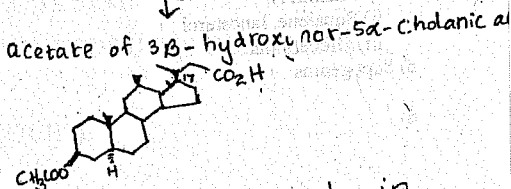 acetate of 3β-hydroxi nor-5α-Cholanic a
17
CO₂H
CH₃COO
H
in